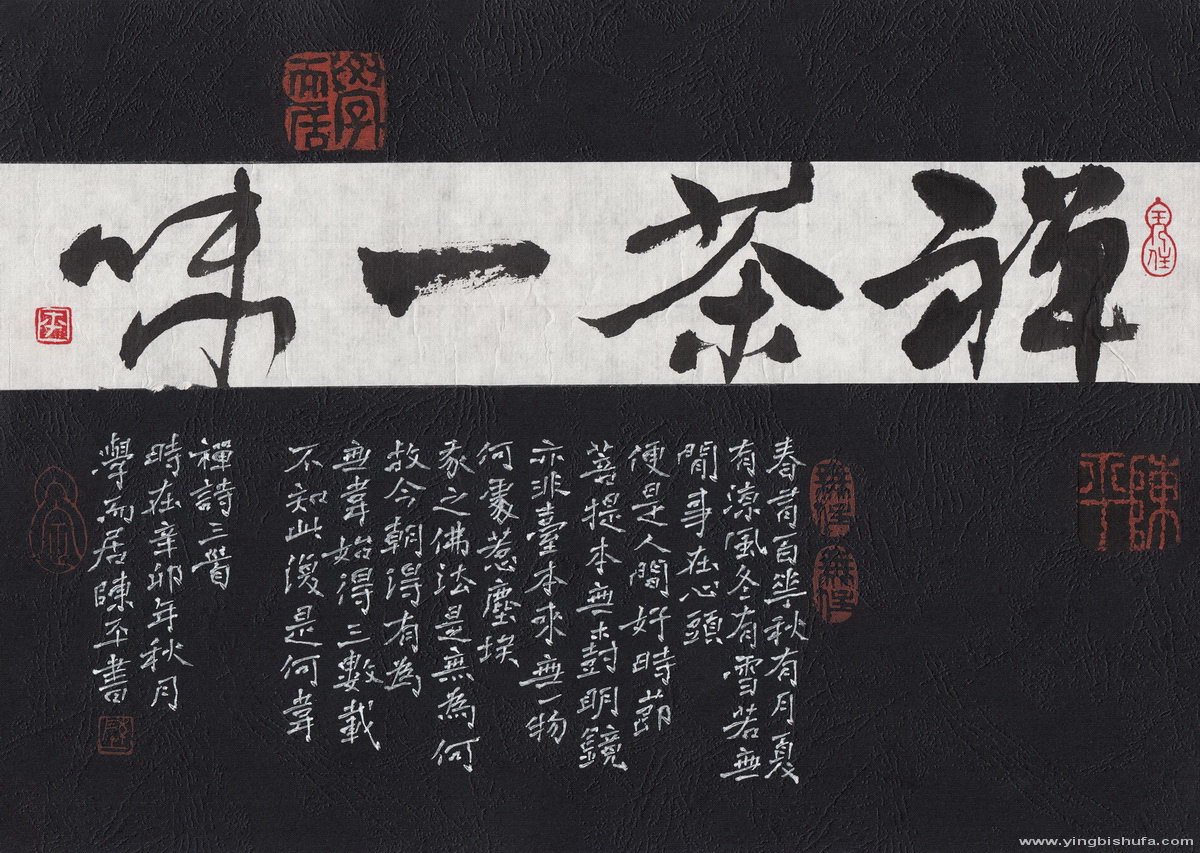 禅茶一味
學而居
平
陳平
春有百華秋有月夏
有涼風冬有雪若無
閒事在心頭
便是人間好時節
菩提本無樹明鏡
亦非臺本來無一物
何處惹塵埃
我之佛法是無為何
故今朝得有為
無韋始得三數載
不知此復是何韋
禪詩三首
時在辛卯年秋月
學而居陳平書
www.yingbishufa.com